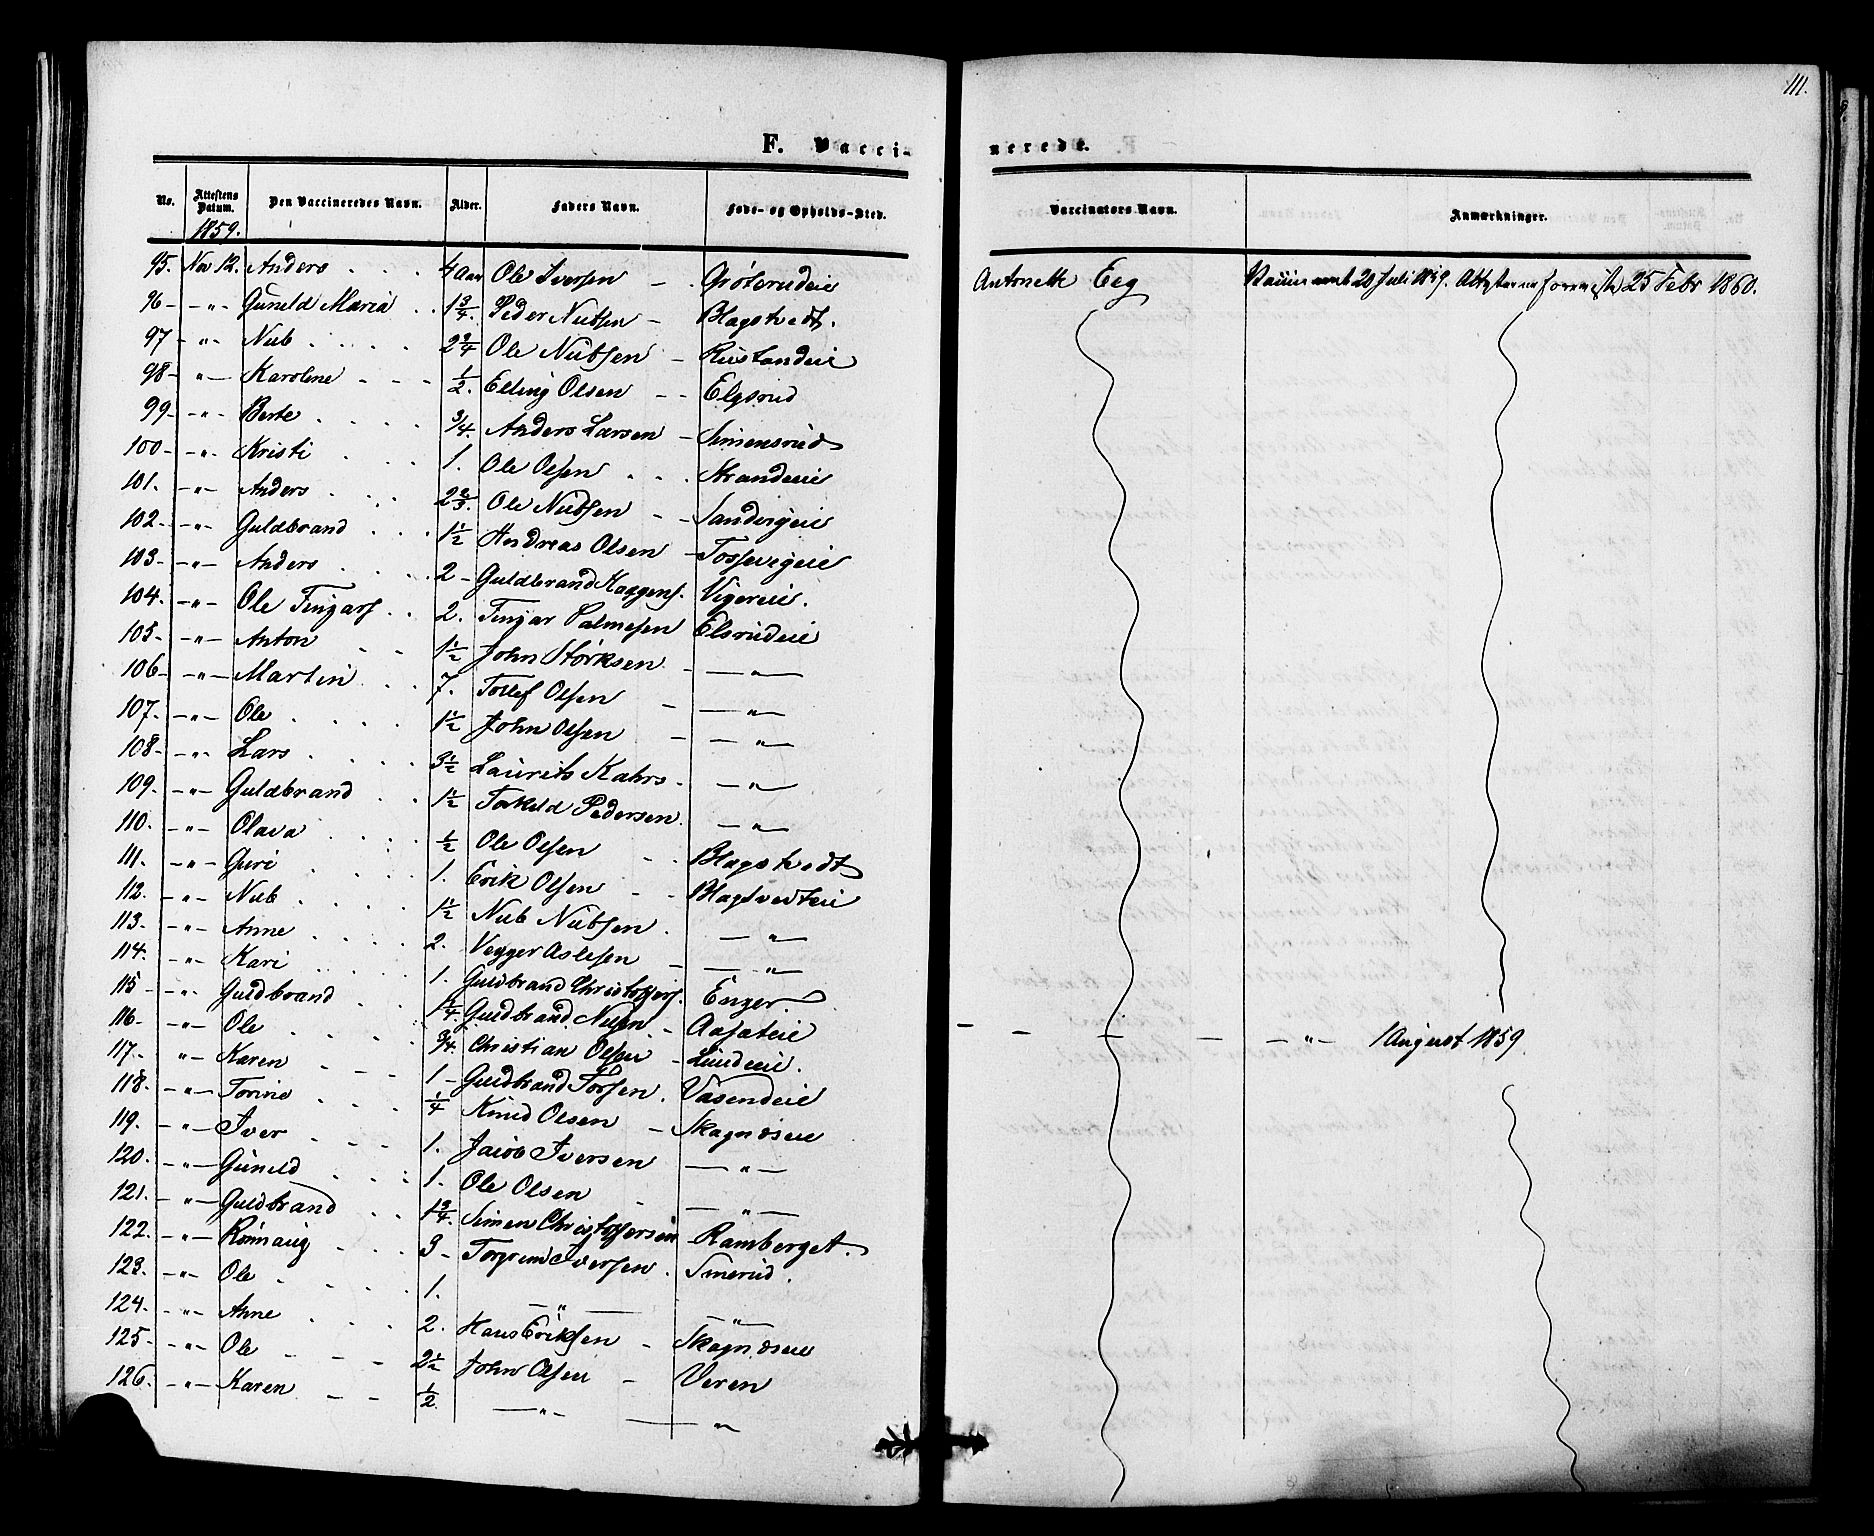 111.
F. Vacci- nerede.
No. Attestens Datum. Den Vaccineredes Navn. Alder. Faders Navn. Føde- og Opholds-Sted. Vaccinators Navn. Anmærkninger.
1859.
95. Nov 12. Anders 4 Aar Ole Iversen Grötsrudeie Antonette Eeg 20 Juli 1859. 25 Febr 1860.
96 -"- Guneld Maria 1 3/4. Peder Nubsen Blagstvedt.
97 -"- Nub 2 3/4 Ole Nubsen Ruslandeie
98 -"- Karoline 1/2. Elling Olsen Elgsrud
99 -"- Berte 3/4. Anders Larsen Simensrud
100 -"- Kristi 1. Ole Olsen Strandeie
101. -"- Anders 2 2/3. Ole Nubsen Sandvigeie
102. -"- Guldbrand 1 1/2 Andreas Olsen Tossevigeie
103. -"- Anders 2 Guldbrand Haagens. Vigereie.
104. -"- Ole Tingars 2. Tingar Palmesen Elsrudeie
105. -"- Anton 1 1/2 John Störksen -"-
106 -"- Martin 7. Tollef Olsen -"-
107. -"- Ole 1 1/2 John Olsen -"-
108 -"- Lars 3 1/2 Laurits Kahrs -"-
109. -"- Guldbrand 1 1/2 Torkild Pedersen -"-
110. -"- Olava 1/2 Ole Olsen Blagstvedt
111. -"- Guri 1. Erik Olsen Blagtvedteie
112. -"- Nub 1 1/2 Nub Nubsen -"-
113. -"- Anne 2. Vegger Aslesen -"-
114. -"- Kari 1. Guldbrand Christoffers. Enger
115 -"- Guldbrand 1 1/4 Guldbrand Nilsen Aasateie
116. -"- Ole 3/4. Christian Olsen Lundeie. -"- 1 August 1859
117. -"- Karen 1 Guldbrand Torsen Vasendeie
118. -"- Torine 1/4 Knud Olsen Skagnæseie
119. -"- Iver 1. Jacob Iversen -"-
120. -"- Guneld 1. Ole Olsen -"-
121. -"- Guldbrand 1 3/4. Simen Christoffersen Ramberget.
122. -"- Rönnaug 3 Torgrim Iversen Smerud.
123. -"- Ole 1. -"- -"-
124. -"- Anne 2. Hans Eriksen Skagnæseie
125 -"- Ole 2 1/2 John Olsen Veren
126. -"- Karen 1/2. -"- -"-